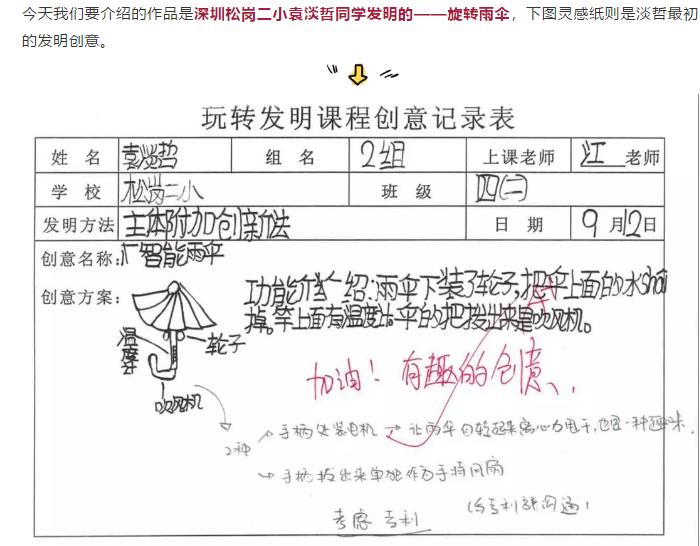 今天我们要介绍的作品是深圳松岗二小袁淡哲同学发明的——旋转雨伞，下图灵感纸则是淡哲最初
的发明创意。
玩转发明课程创意记录表
姓 名 袁淡哲 组 名 2组 上课老师 江 老师
学 校 松岗二小 班 级 四(二)
发明方法 主体附加创新法 日 期 9月12日
创意名称：智能雨伞
创意方案：
功能介绍：雨伞下装了轮子，把伞上面的水shai
掉。竿上面有温度计。伞的把拔出来是吹风机。
温度计
轮子
吹风机
加油！有趣的创意、、
2种
手柄处装电机 让雨伞自转起来离心力甩干，也是一种趣味.
手柄拔出来单独作为手持风扇
考虑专利
(与专利部沟通)